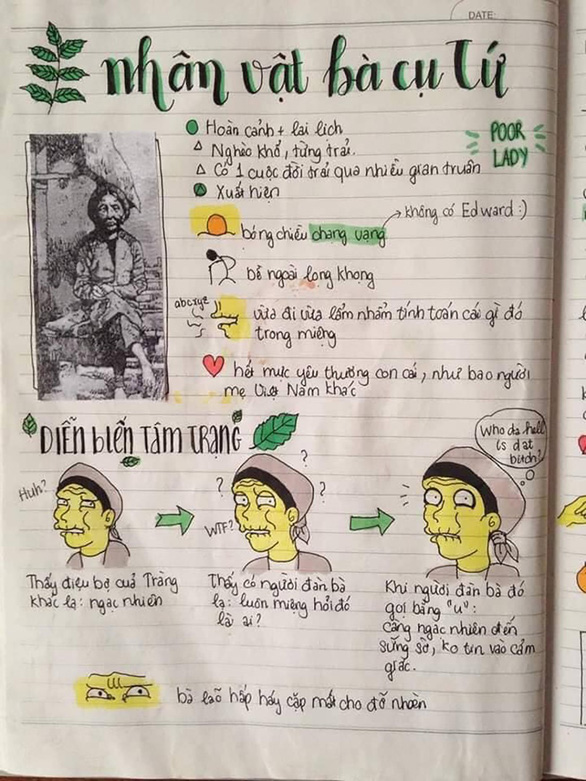 DATE:
nhân vật bà cụ Tứ
Hoàn cảnh + lai lịch
Nghèo khổ, từng trải.
Có 1 cuộc đời trải qua nhiều gian truân
Xuất hiện
POOR
LADY
không có Edward :)
bóng chiều chạng vạng
bề ngoài lọng khọng
abcxyz
vừa đi vừa lẩm nhẩm tính toán cái gì đó
trong miệng
hết mực yêu thương con cái, như bao người
mẹ Việt Nam khác
DIỄN BIẾN TÂM TRẠNG
Huh?
?
?
?
WTF?
Who da hell
is dat
bitch?
Thấy điệu bộ của Tràng
khác lạ: ngạc nhiên
Thấy có người đàn bà
lạ: luôn miệng hỏi đó
là ai?
Khi người đàn bà đó
gọi bằng "u":
càng ngạc nhiên đến
sững sờ, ko tin vào cảm
giác.
bà lão hấp háy cặp mắt cho đỡ nhoèn